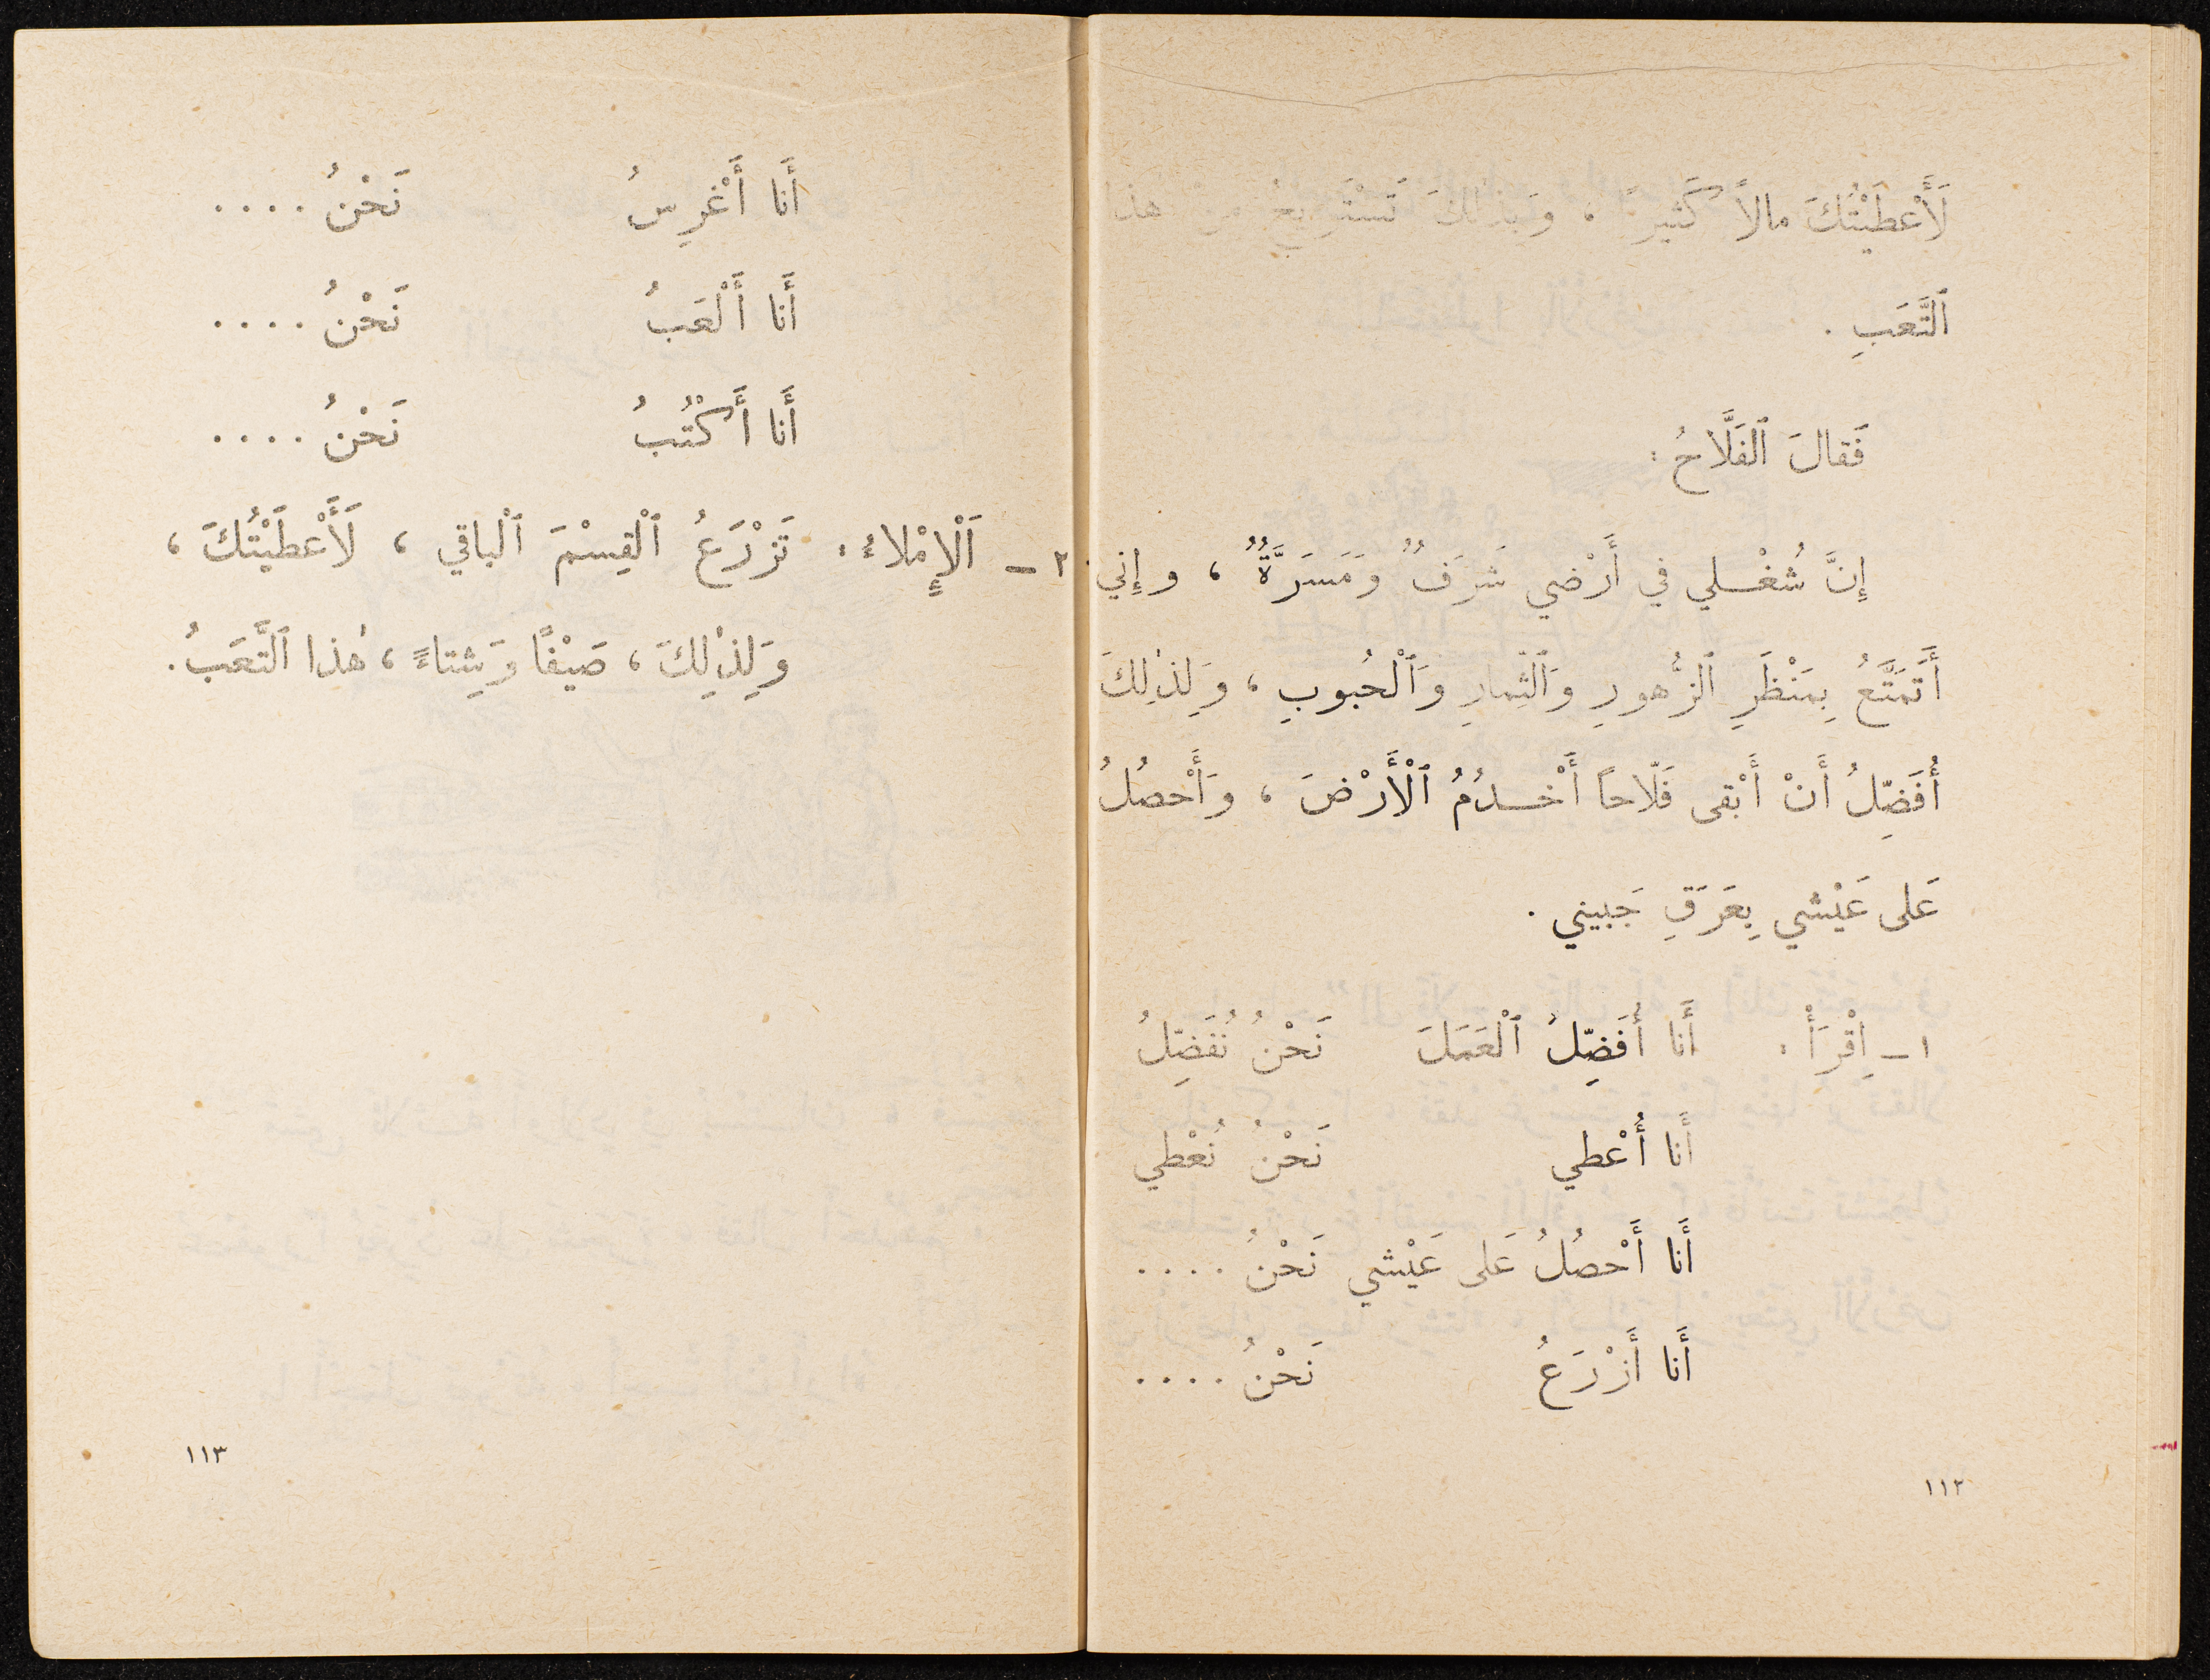 لَأَعْطَيْتُكَ مالاً كَثيراً ، وَبِذٰلِكَ تَسْتَرِيحُ مِنْ هٰذا
ٱلتَّعَبِ .
فَقالَ ٱلفَلَّاحُ :
إِنَّ شُغْلي في أَرْضي شَرَفٌ وَمَسَرَّةٌ ، وإِني
أَتَمَتَّعُ بِمَنْظَرِ ٱلزُّهورِ وَٱلثِّمارِ وَٱلْحُبوبِ ، وَلِذٰلِكَ
أُفَضِّلُ أَنْ أَبْقى فَلّاحاً أَخْدُمُ ٱلْأَرْضَ ، وَأَحْصُلُ
عَلى عَيْشي بِعَرَقِ جَبيني .
١ – اِقْرَأْ : أَنا أُفَضِّلُ ٱلْعَمَلَ نَحْنُ نُفَضِّلُ
أَنا أُعْطي نَحْنُ نُعْطي
أَنا أَحْصُلُ عَلى عَيْشي نَحْنُ ....
أَنا أَزْرَعُ نَحْنُ ....
١١٢
أَنا أَغْرِسُ نَحْنُ ....
أَنا أَلْعَبُ نَحْنُ ....
أَنا أَكْتُبُ نَحْنُ ....
٢ – اَلْإِمْلاءُ : تَزْرَعُ ٱلْقِسْمَ ٱلْباقي ، لَأَعْطَيْتُكَ ،
وَلِذٰلِكَ ، صَيْفًا وَشِتاءً ، هٰذا ٱلتَّعَبُ .
١١٣